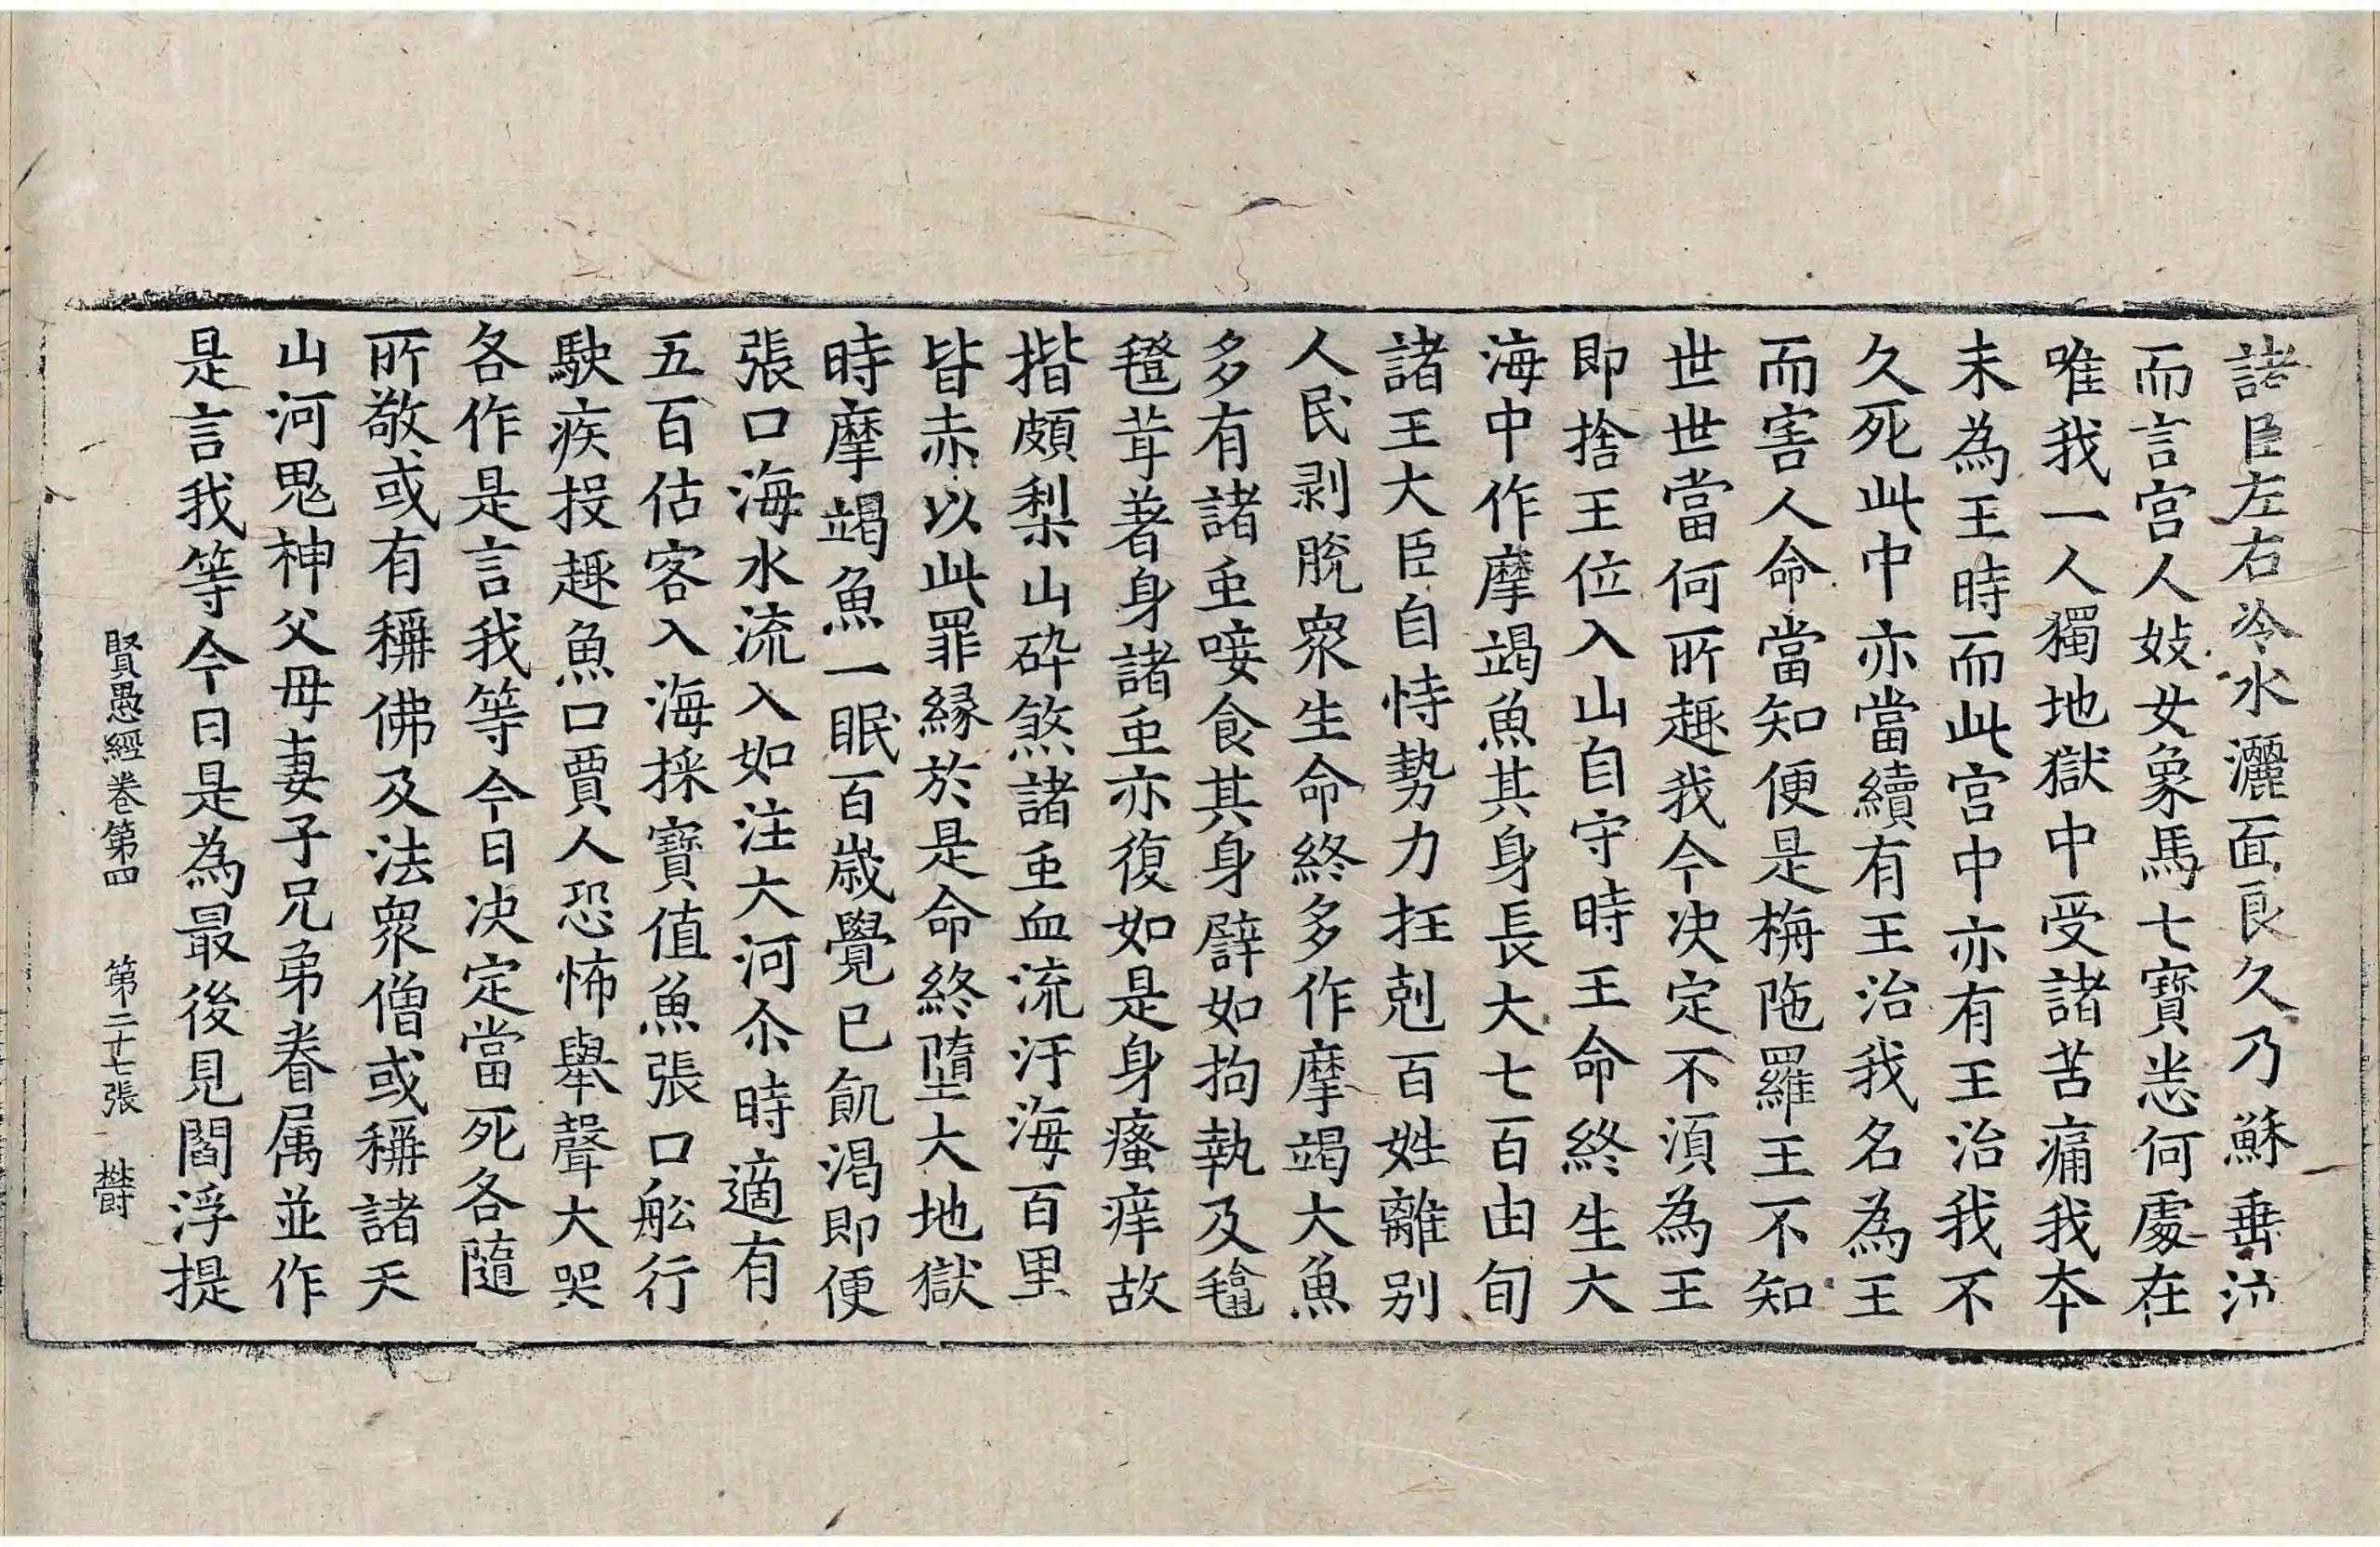 諸臣左右冷水灑面良久乃蘇垂泣
而言宮人妓女象馬七寶悉何處在
唯我一人獨地獄中受諸苦痛我本
未為王時而此宮中亦有王治我不
久死此中亦當續有王治我名為王
而害人命當知便是栴陁羅王不知
世世當何所趣我今决定不湏為王
即捨王位入山自守時王命終生大
海中作摩竭魚其身長大七百由旬
諸王大臣自恃勢力抂剋百姓離別
人民剥脫衆生命終多作摩竭大魚
多有諸䖝唼食其身譬如拘執及𣰽
㲪茸著身諸䖝亦復如是身瘙痒故
揩頗梨山砕煞諸䖝血流汙海百里
皆赤以此罪緣於是命終墮大地獄
時摩竭魚一眠百歲覺已飢渴即便
張口海水流入如注大河尒時適有
五百估客入海採寶值魚張口舩行
駃疾投趣魚口賈人恐怖舉聲大哭
各作是言我等今日决定當死各隨
所敬或有稱佛及法衆僧或稱諸天
山河鬼神父母妻子兄弟眷属並作
是言我等今日是為最後見閻浮提
賢愚經卷第四 第二十七張 欝